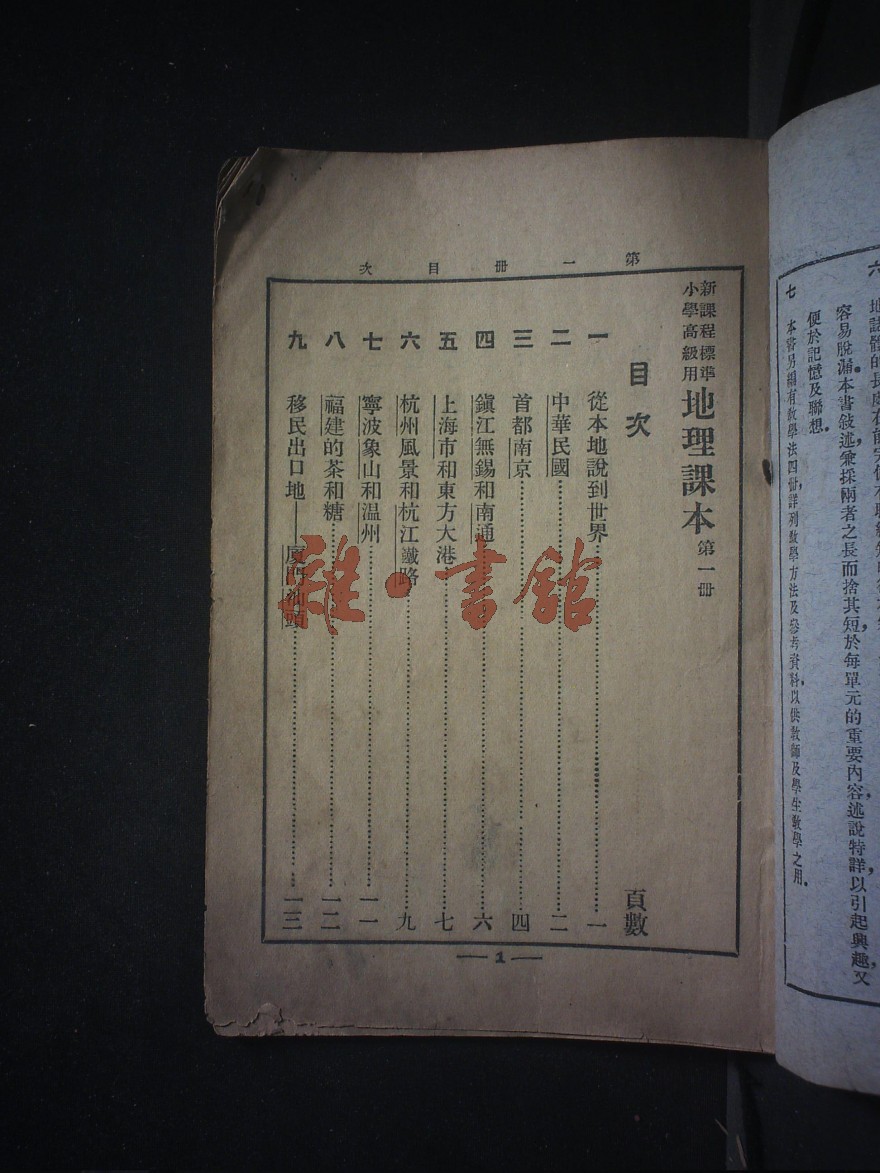 六
容易脫漏。本書敍述，兼採兩者之長而捨其短，於每單元的重要內容，述說特詳，以引起興趣，又
便於記憶及聯想。
七 本書另編有教學法四冊，詳列教學方法及參考資料，以供教師及學生教學之用。
第一冊目次
新課程標準
小學高級用
地理課本 第一冊
目次 頁數
一 從本地說到世界 一
二 中華民國 二
三 首都南京 四
四 鎮江無錫和南通 六
五 上海市和東方大港 七
六 杭州風景和杭江鐵路 九
七 寧波象山和温州 一一
八 福建的茶和糖 一二
九 移民出口地——廈門汕頭 一三
1
雜·書館